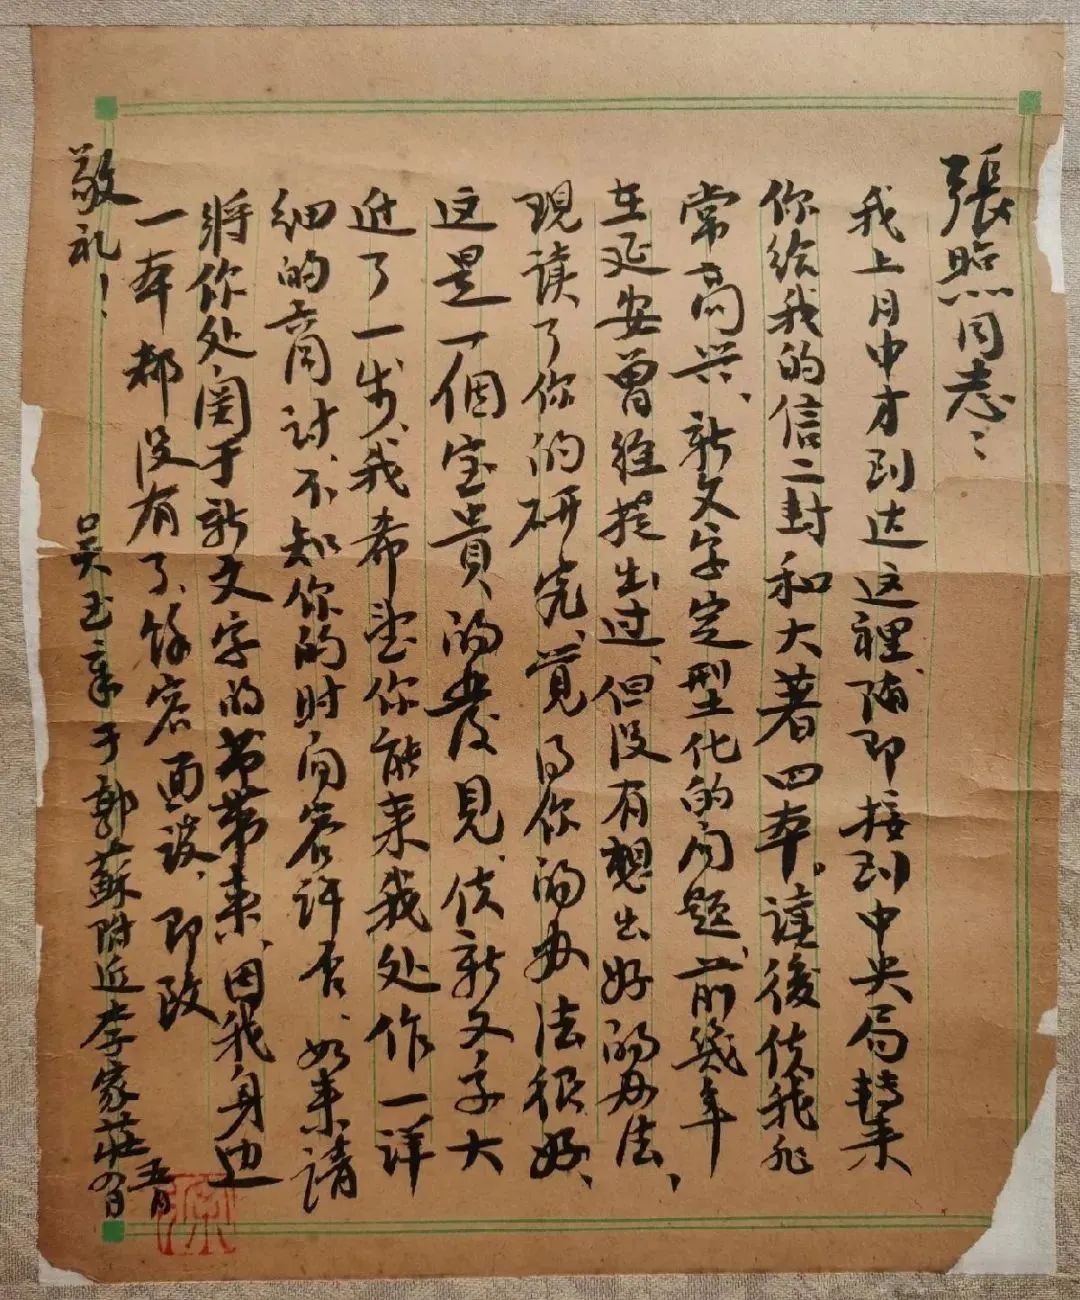 張照同志：
我上月中才到达这裡，随即接到中央局轉来
你给我的信二封和大著四本。读後使我非
常高兴、新文字定型化的问题、前幾年
在延安曾经提出过、但没有想出好的办法、
现读了你的研究、觉得你的办法很好、
这是一個宝貴的發見、使新文字大
进了一步、我希望你能来我处作一详
细的商讨、不知你的时间容许否、如来请
将你处関于新文字的书带来、因我身边
一本都没有了、馀容面谈、即致
敬礼！
吴玉章于郭蘇附近李家莊
五月